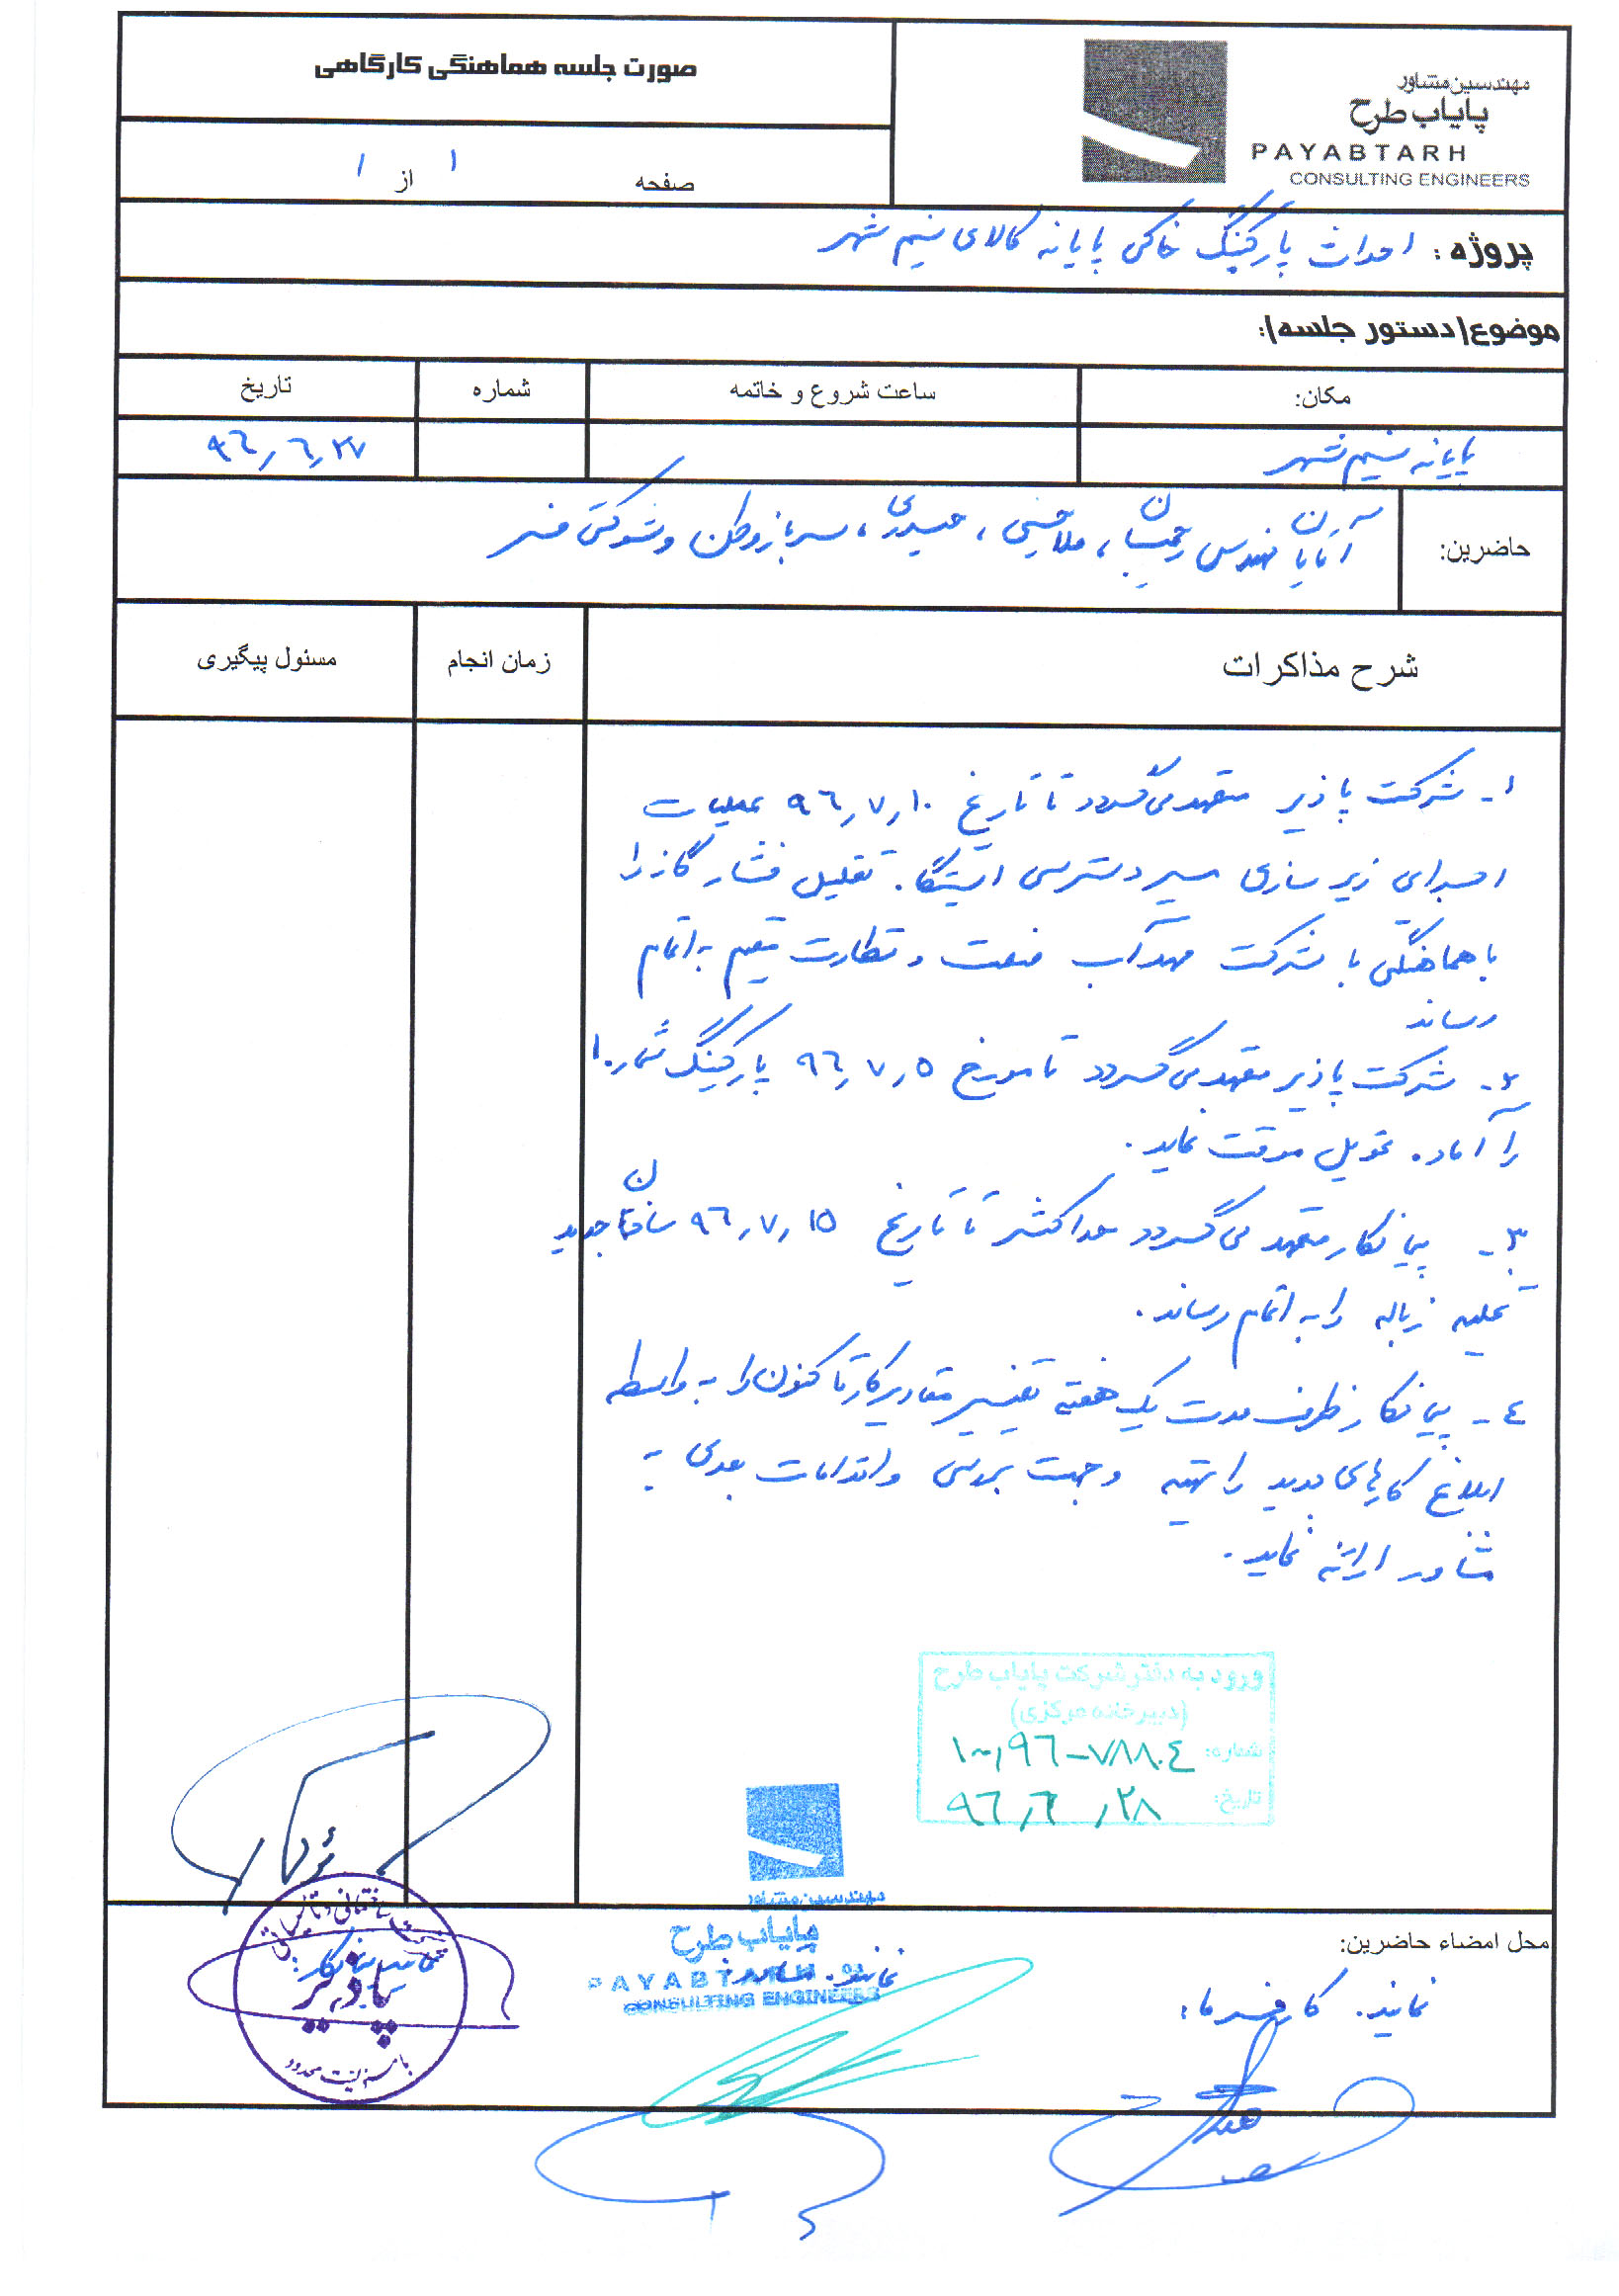 صورت جلسه هماهنگی کارگاهی
مهندسین مشاور
پایاب طرح
PAYABTARH
CONSULTING ENGINEERS
صفحه ۱ از ۱
پروژه : احداث پارکینگ خاکی پایانه کالای نسیم شهر
موضوع(دستور جلسه):
مکان: ساعت شروع و خاتمه شماره تاریخ
پایانه نسیم شهر ۹۶٫۶٫۲۷
حاضرین: آقایان مهندس رحیمیان ، ملاحسینی ، حیدری ، سرباز وطن و شوکتی منسر
شرح مذاکرات زمان انجام مسئول پیگیری
۱- شرکت پاذیر متعهد می‌گردد تا تاریخ ۹۶٫۷٫۱۰ عملیات
اجرای زیرسازی مسیر دسترسی ایستگاه تقلیل فشار گاز را
با هماهنگی با شرکت مهدآب صنعت و نظارت مقیم به اتمام
رساند
۲- شرکت پاذیر متعهد می‌گردد تا مورخ ۹۶٫۷٫۵ پارکینگ شماره ۱
را آماده تحویل موقت نماید.
۳- پیمانکار متعهد می‌گردد حداکثر تا تاریخ ۹۶٫۷٫۱۵ ساختمان جدید
تخلیه زباله را به اتمام رساند.
٤- پیمانکار ظرف مدت یک هفته تغییر مقادیر کار تاکنون را به واسطه
ابلاغ کارهای جدید را تهیه و جهت بررسی و اقدامات بعدی به
مشاور ارائه نماید.
ورود به دفتر شرکت پایاب طرح
(دبیرخانه مرکزی)
شماره: ۱۰۰٫۹۶-۷۸۸۰٤
تاریخ: ۹۶٫۶٫۲۸
مهندسین مشاور
پایاب طرح
PAYABTARH
CONSULTING ENGINEERS
محل امضاء حاضرین:
نماینده کارفرما :
نماینده مشاور:
نماینده پیمانکار:
پاذیر
با مسئولیت محدود